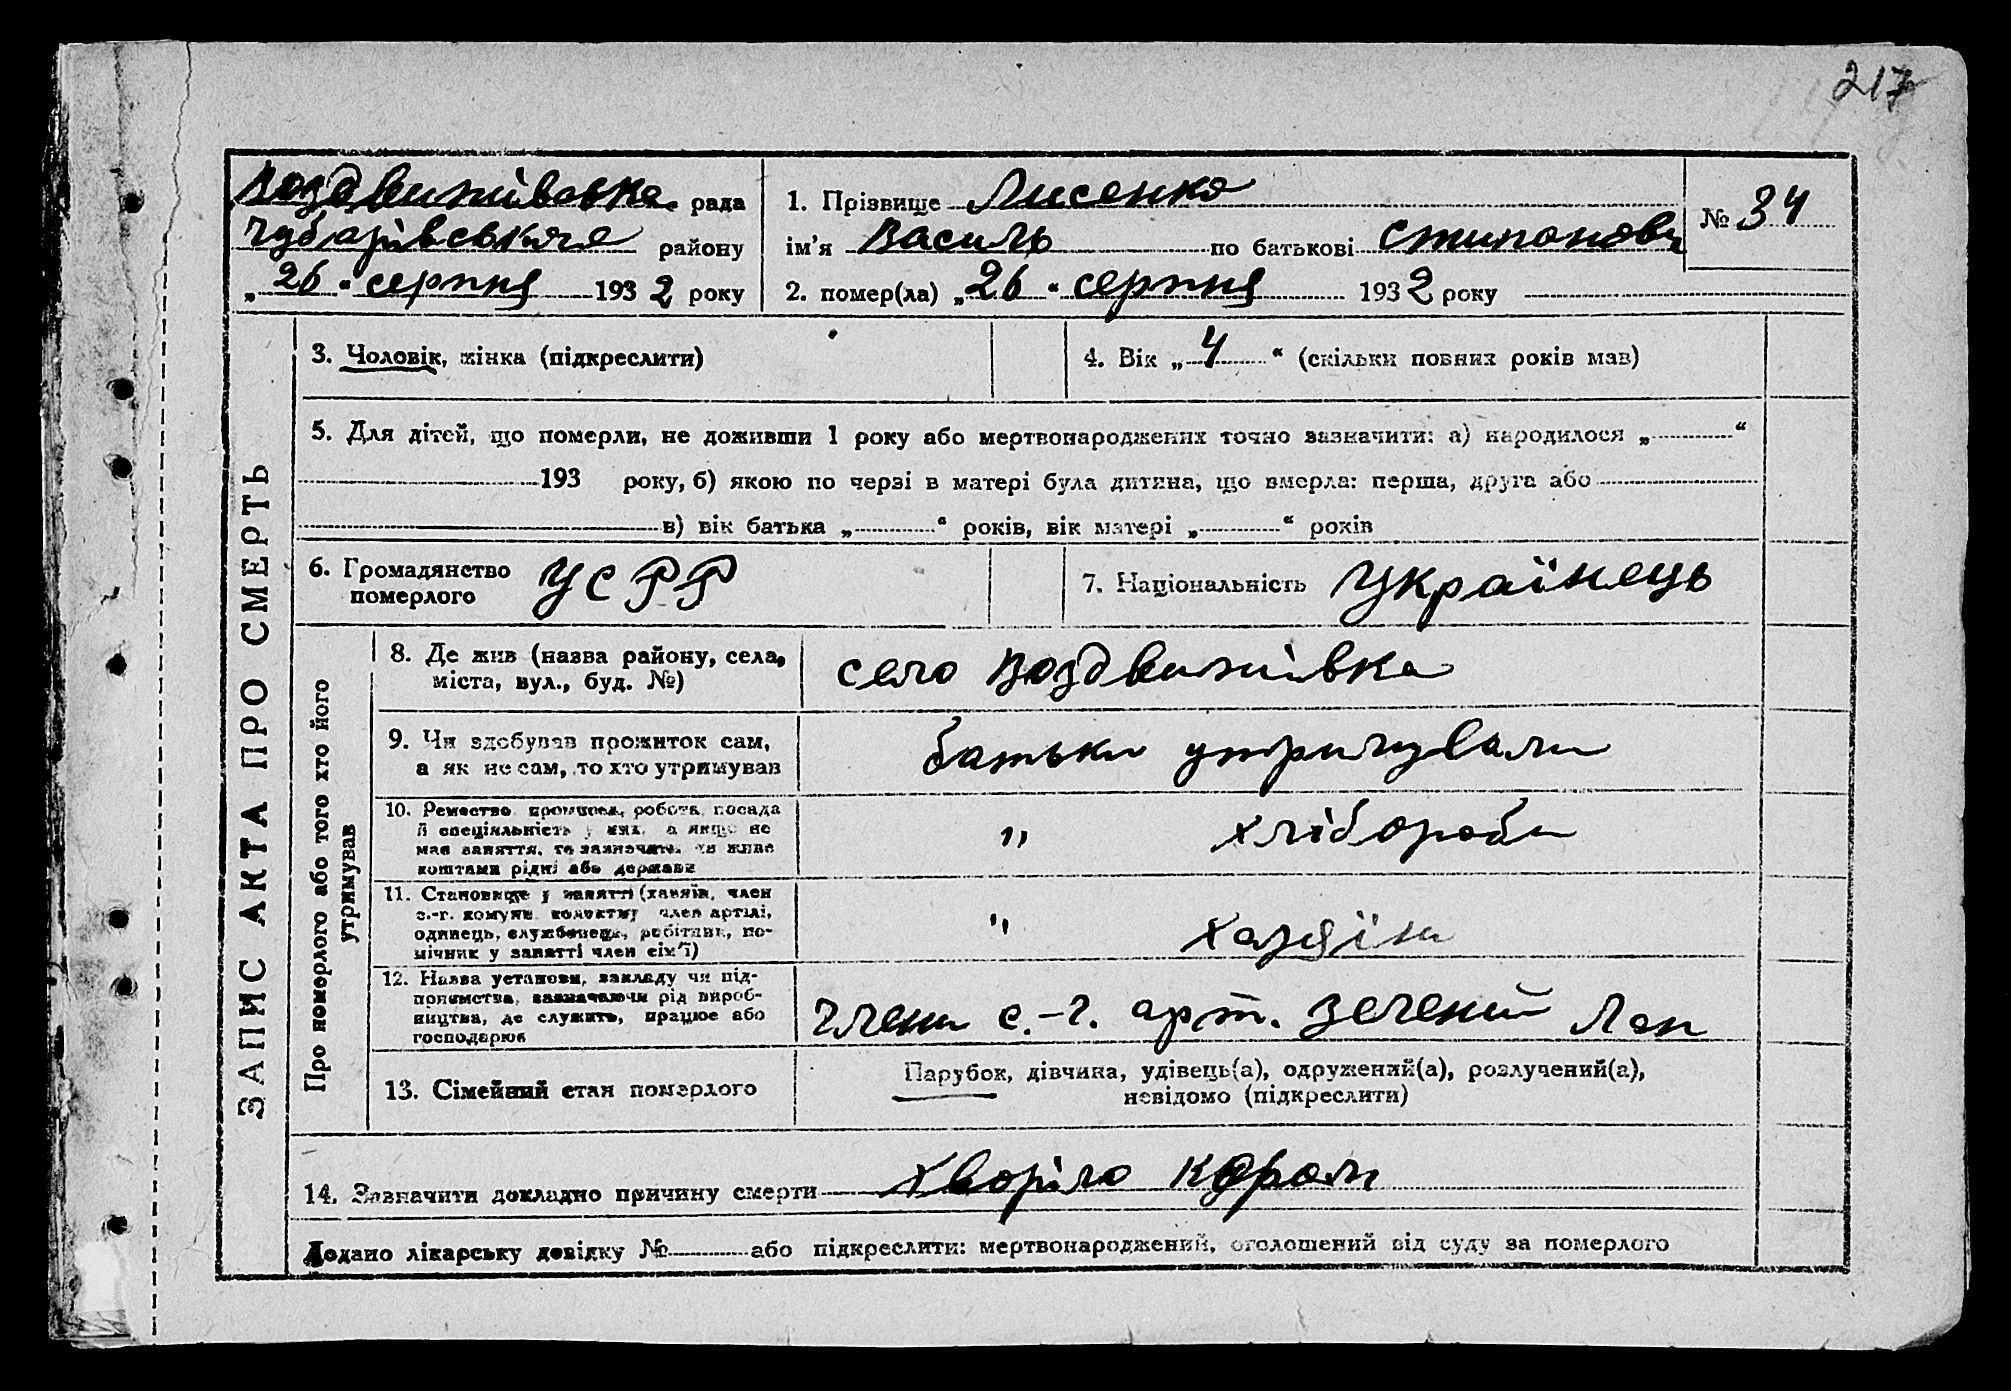 217
Воздвижівська рада
Чубарівського району
„ 26 “ серпня 1932 року
1. Прізвище Лисенко
ім’я Василь по батькові Стипанови
№ 34
2. помер(ла) „ 26 “ серпня 1932 року
ЗАПИС АКТА ПРО СМЕРТЬ
3. Чоловік, жінка (підкреслити)
4. Вік „ 4 “ (скільки повних років мав)
5. Для дітей, що померли, не доживши 1 року або мертвонароджених точно зазначити: а) народилося „ “
193 року, б) якою по черзі в матері була дитина, що вмерла: перша, друга або
в) вік батька „ “ років, вік матері „ “ років
6. Громадянство
померлого
УСРР
7. Національність Українець
Про померлого або того хто його
утримував
8. Де жив (назва району, села,
міста, вул., буд. №)
село Воздвижівка
9. Чи здобував прожиток сам,
а як не сам, то хто утримував
батьки утримували
10. Ремество, промисел, робота, посада
й спеціяльність у них, а якщо не
має заняття, то зазначити, чи живе
коштами рідні або держави
" хлібороби
11. Становище у занятті (хазяїн, член
с.-г. комуни, колективу, член артілі,
одинець, службовець, робітник, по-
мічник у занятті член сім’ї)
" хазяїни
12. Назва установи, закладу чи під-
приємства, зазначаючи рід вироб-
ництва, де служить, працює або
господарює
члени с.-г. арт. Зелений Лан
13. Сімейний стан померлого
Парубок, дівчина, удівець(а), одружений(а), розлучений(а),
невідомо (підкреслити)
14. Зазначити докладно причину смерти хворіло кором
Додано лікарську довідку № або підкреслити: мертвонароджений, оголошений від суду за померлого